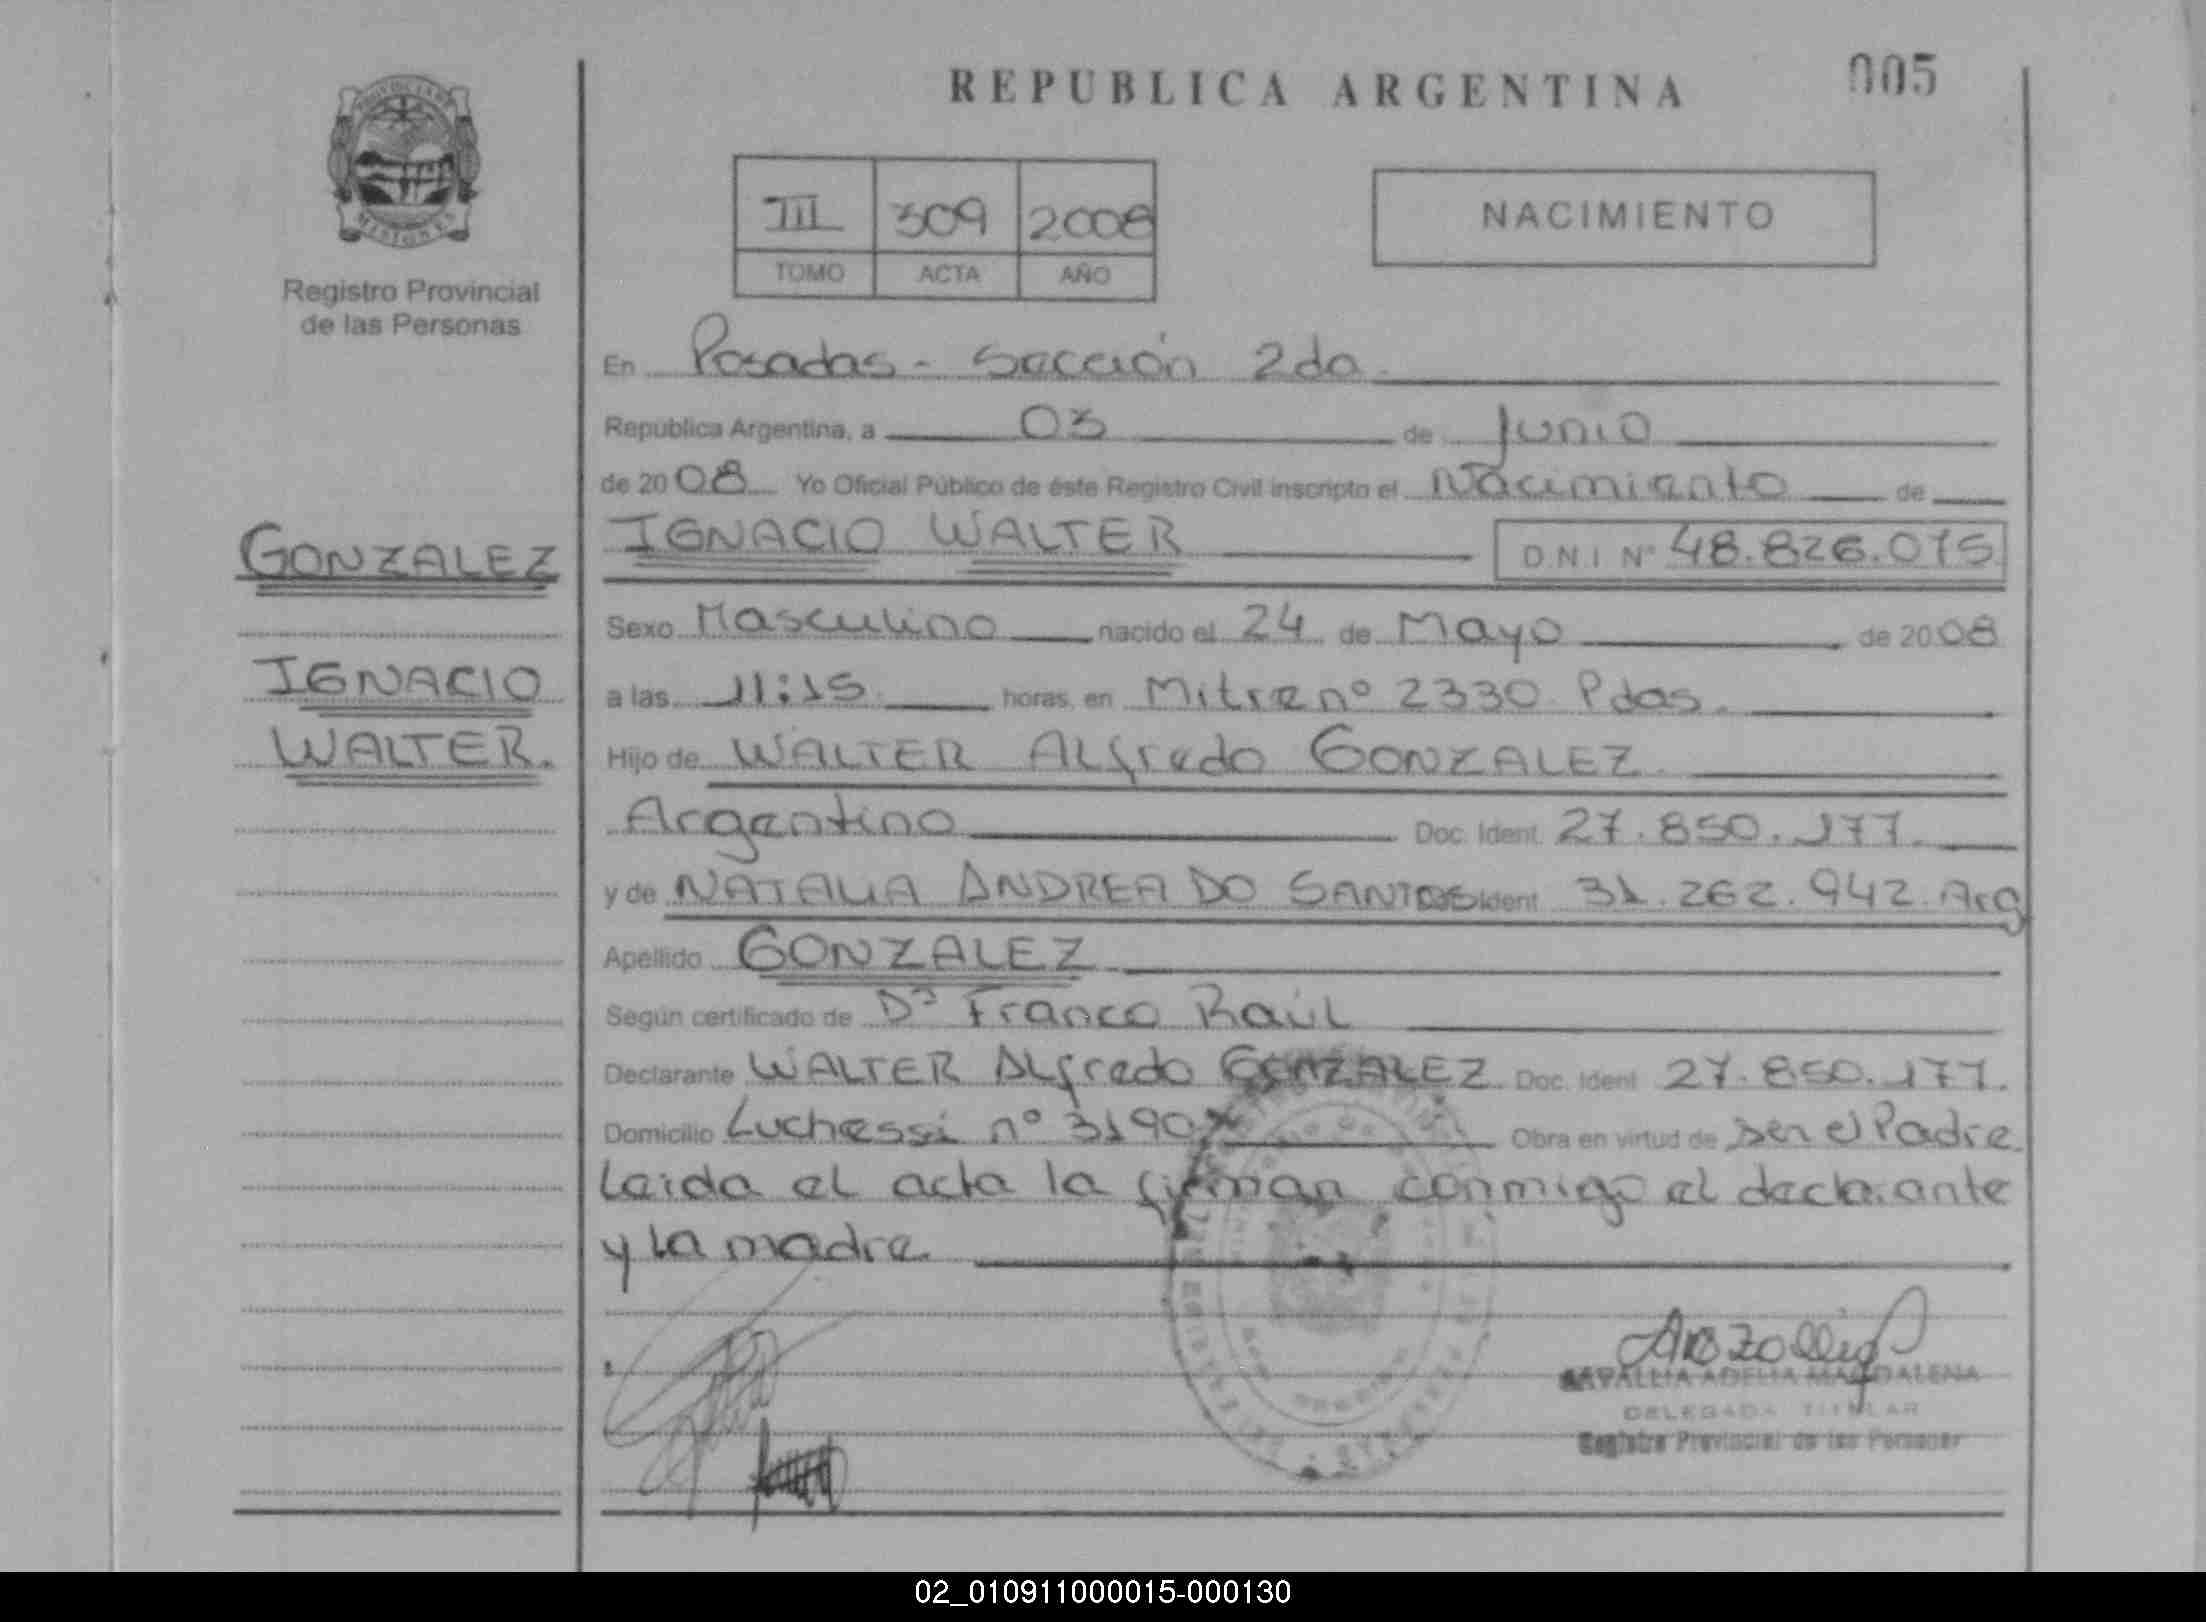 REPUBLICA ARGENTINA
005
PROVINCIA DE
MISIONES
Registro Provincial
de las Personas
III 309 2008
TOMO ACTA AÑO
NACIMIENTO
En Posadas - Sección 2da.
República Argentina, a 03 de Junio
de 2008 Yo Oficial Público de éste Registro Civil inscripto el Nacimiento de
GONZALEZ
IGNACIO
WALTER.
IGNACIO WALTER D.N.I Nº 48.826.075
Sexo Masculino nacido el 24 de Mayo de 2008
a las 11:15 horas, en Mitre nº 2330 Pdas.
Hijo de WALTER Alfredo GONZALEZ
Argentino Doc. Ident. 27.850.177.
y de NATALIA ANDREA DO SANTOS Ident 31.262.942. Arg
Apellido GONZALEZ
Según certificado de Dr Franco Raúl
Declarante WALTER Alfredo GONZALEZ Doc. Ident 27.850.177.
Domicilio Luchessi nº 3190 Obra en virtud de ser el Padre
Leida el acta la firman conmigo el declarante
y la madre.
ADELIA MAGDALENA
DELEGADA TITULAR
Registro Provincial de las Personas
02_010911000015-000130